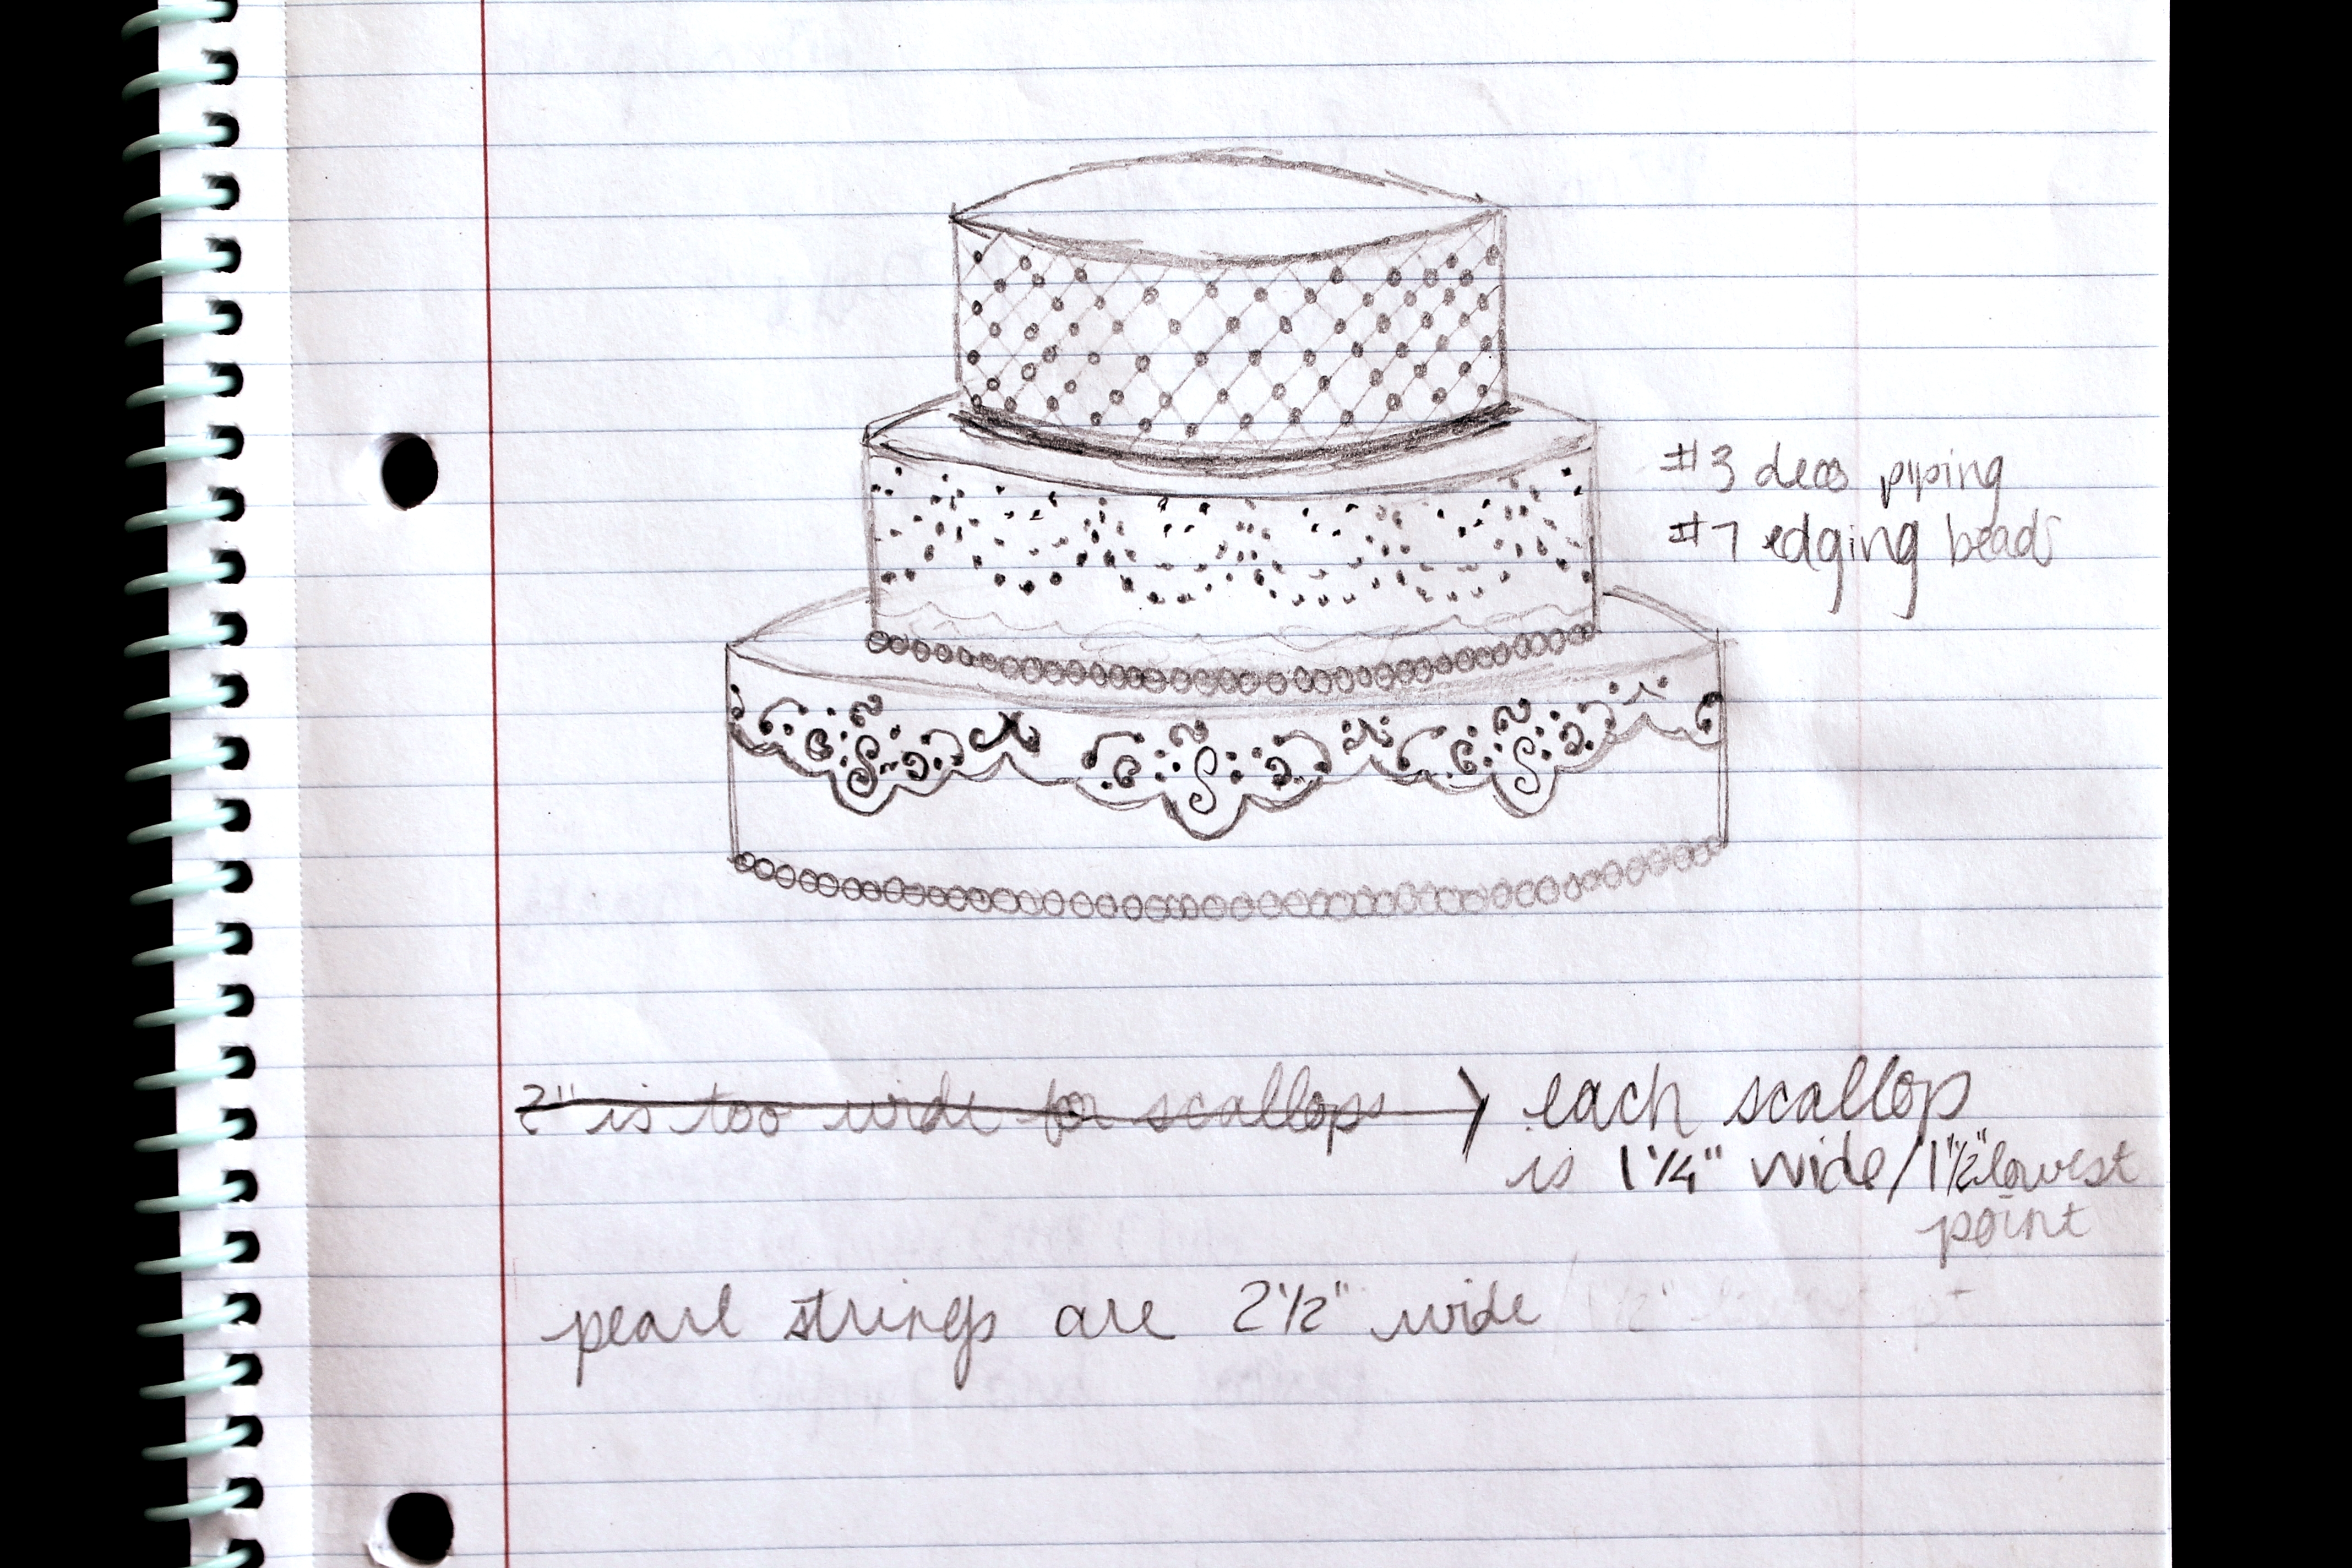 #3 deco piping
#7 edging beads
2" is too wide for scallops → each scallop
is 1 1/4" wide/1 1/2" lowest
point
pearl strings are 2 1/2" wide